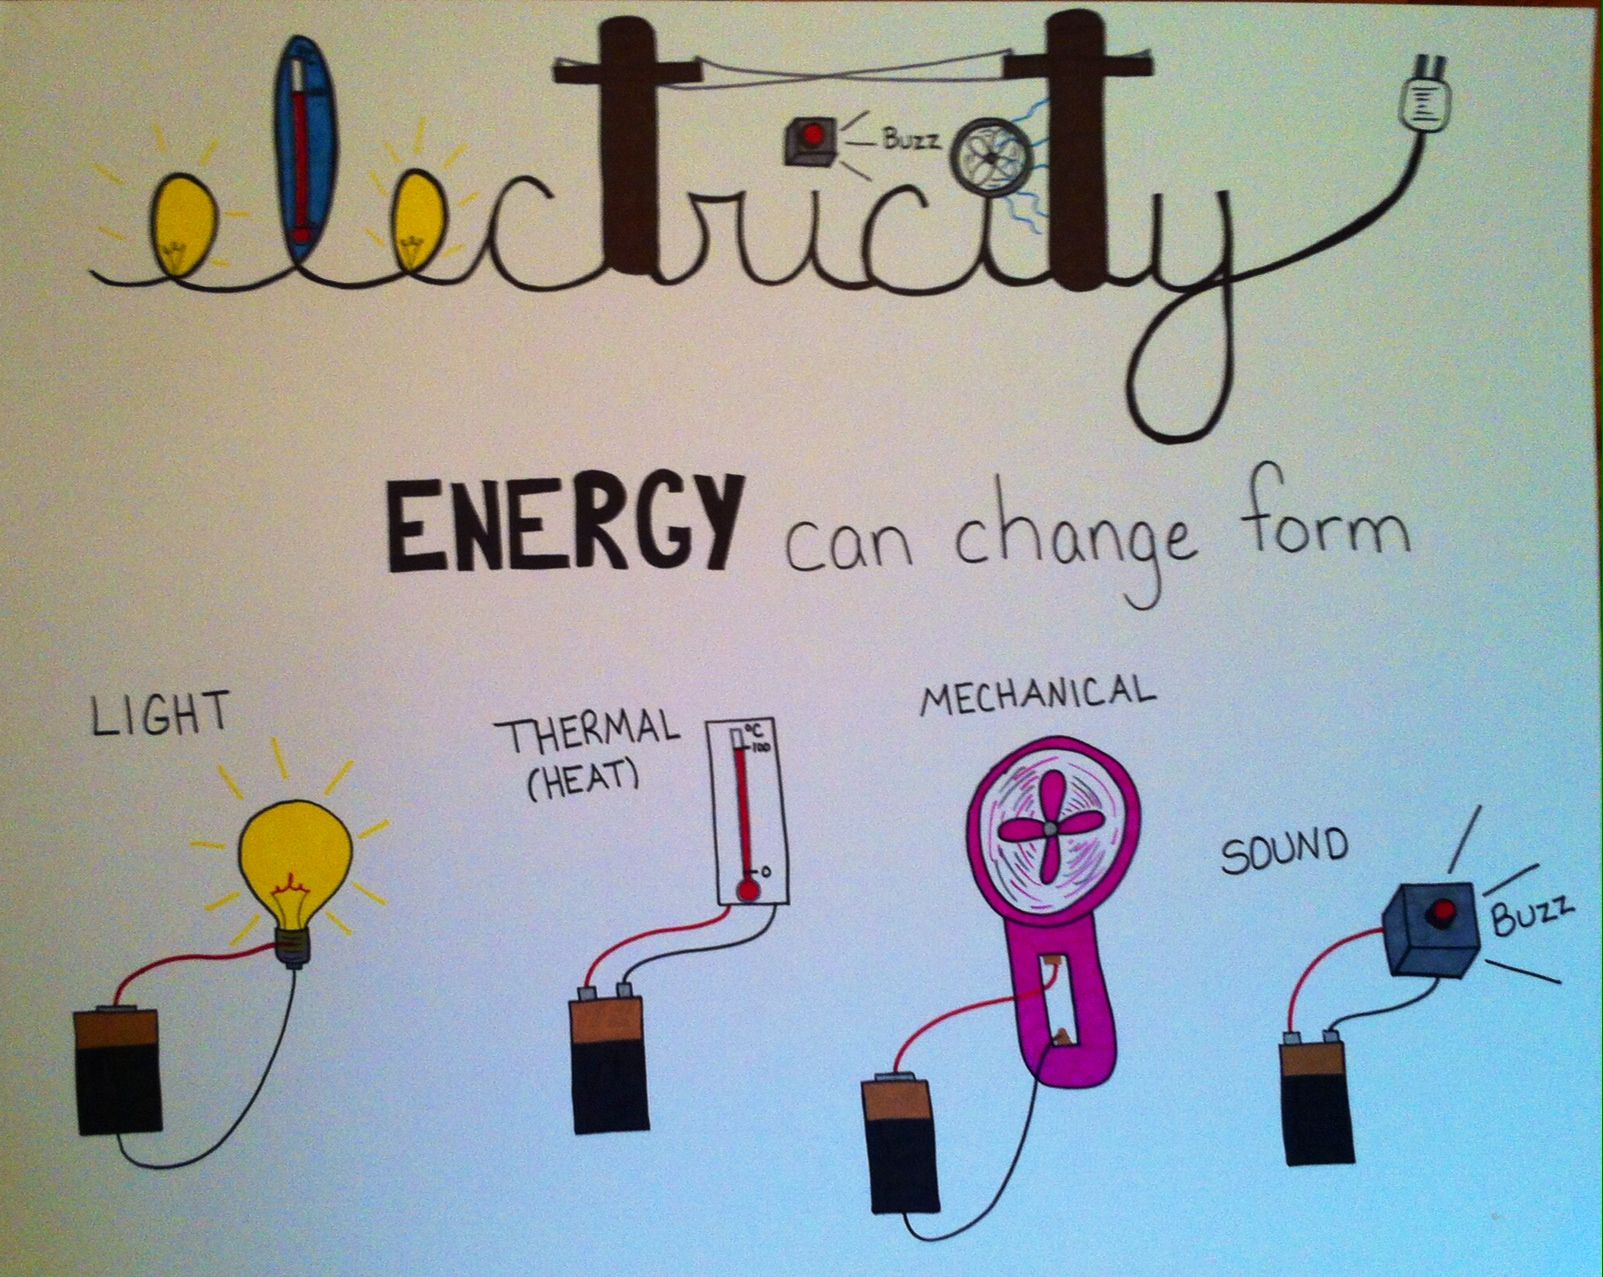 electricity
Buzz
ENERGY can change form
LIGHT
THERMAL
(HEAT)
°C
100
0
MECHANICAL
SOUND
Buzz